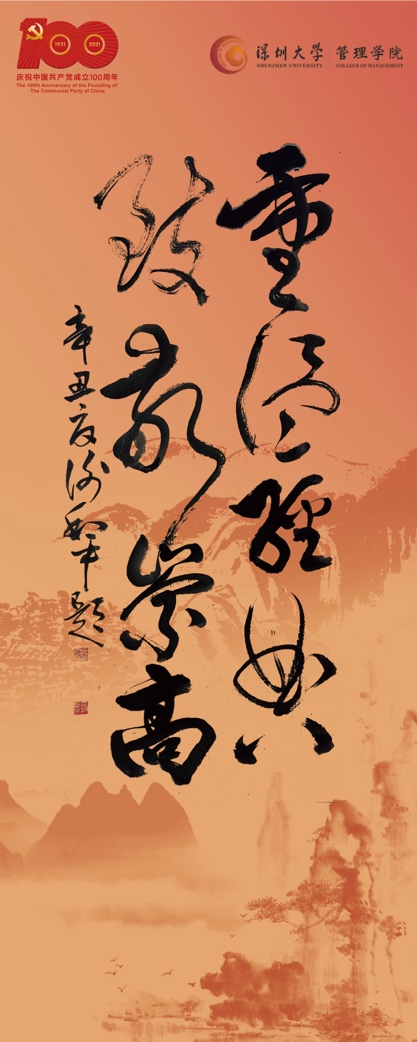 100
1921
2021
庆祝中国共产党成立100周年
The 100th Anniversary of the Founding of
The Communist Party of China
深圳大学 管理学院
SHENZHEN UNIVERSITY COLLEGE OF MANAGEMENT
重温经典
致敬崇高
辛丑夏 和平题